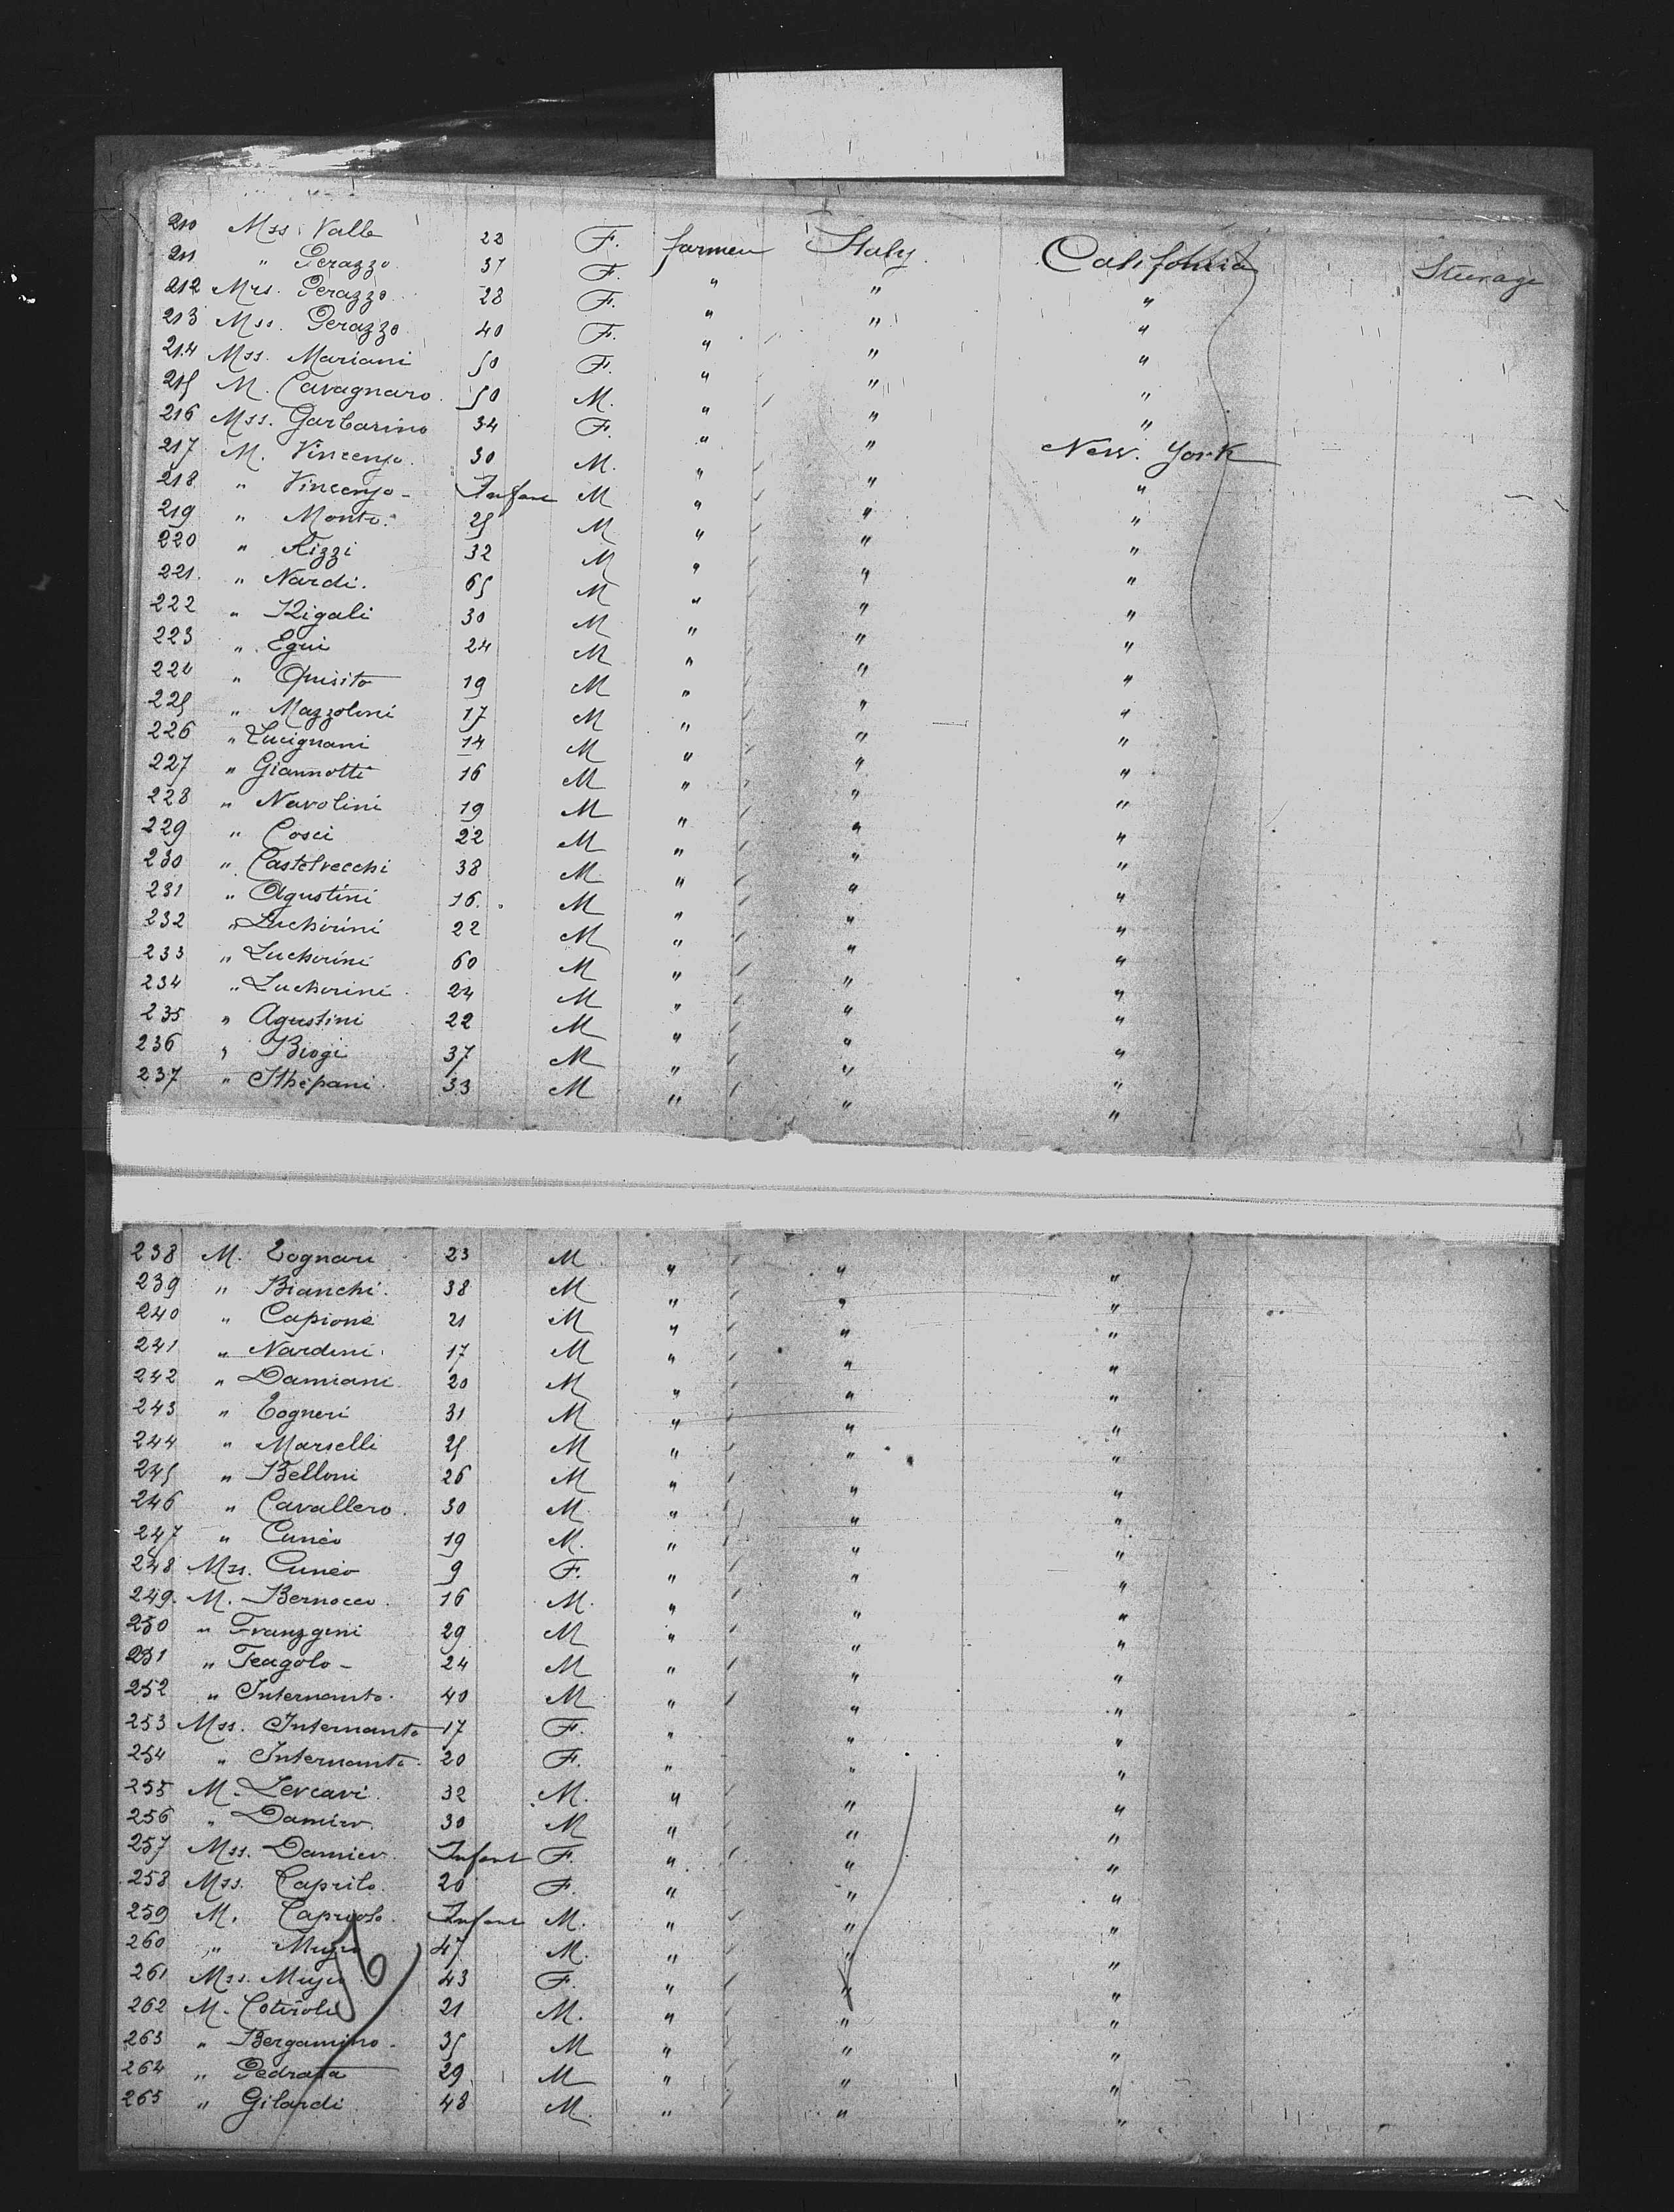 210 Mss. Valle 22 F. farmer Italy. California Steerage
211 " Perazzo 37 F. " " "
212 Mrs. Perazzo 28 F. " " "
213 Mss. Perazzo 40 F. " " "
214 Mss. Mariani 50 F. " " "
215 M. Cavagnaro. 50 M. " " "
216 Mss. Garbarino 34 F. " " New. York
217 M. Vincenzo. 30 M. " " "
218 " Vincenzo - Infant M " " "
219 " Monte. 25 M " " "
220 " Rizzi 32 M " " "
221. " Nardi. 65 M " " "
222 " Rigali 30 M " " "
223 " Egui 24 M " " "
224 " Quisito 19 M " " "
225 " Mazzolini 17 M " " "
226 " Lucignani 14 M " " "
227 " Giannotti 16 M " " "
228 " Navolini 19 M " " "
229 " Cosci 22 M " " "
230 " Castelvecchi 38 M " " "
231 " Agustini 16. M " " "
232 " Luchirini 22 M " " "
233 " Luchirini 60 M " " "
234 " Luchirini 24 M " " "
235 " Agustini 22 M " " "
236 " Biogi 37 M " " "
237 " Sthepani. 33 M " " "
238 M. Tognari 23 M " " "
239 " Bianchi. 38 M " " "
240 " Capione 21 M " " "
241 " Nardini. 17 M " " "
242 " Damiani 20 M " " "
243 " Togneri 31 M " " "
244 " Marselli 25 M " " "
245 " Belloni 26 M " " "
246 " Cavallero. 30 M " " "
247 " Cuneo 19 M. " " "
248 Mss. Cuneo 9 F. " " "
249. M. Bernocco. 16 M. " " "
250 " Franzgini 29 M " " "
251 " Feagolo - 24 M " " "
252 " Internanto. 40 M " " "
253 Mss. Internanto 17 F. " " "
254 " Internanto. 20 F. " " "
255 M. Lercari. 32 M. " " "
256 " Damiev. 30 M " " "
257 Mss. Damiev. Infant F. " " "
258 Mss. Caprilo. 20 F. " " "
259 M. Capriolo. Infant M. " " "
260 " 47 M. " " "
261 Mss. 43 F. " " "
262 M. Cotirole 21 M. " " "
263 " Bergamino. 35 M " " "
264 " Pedrata 29 M " " "
265 " Gilardi 48 M. " " "